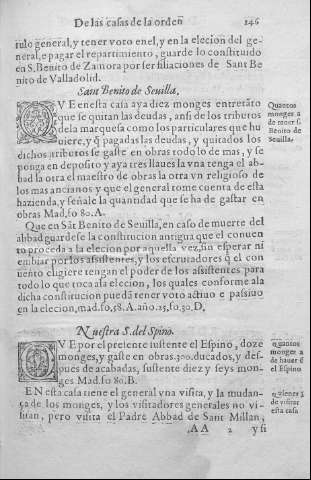 De las casas de la orden 246
tulo general, y tener voto enel, y en la elecion del ge-
neral, e pagar el repartimiento, guarde lo constituido
en S. Benito de Zamora por ser filiaciones de Sant Be
nito de Valladolid.
Sant Benito de Seuilla.
QVE en esta casa aya diez monges entretāto
que se quitan las deudas, ansi de los tributos
de la marquesa como los particulares que hu
uiere, y q̃ pagadas las deudas, y quitados los
dichos tributos se gaste en obras todo lo de mas, y se
ponga en deposito y aya tres llaues la vna tenga el ab-
bad la otra el maestro de obras la otra vn religioso de
los mas ancianos y que el general tome cuenta de esta
hazienda, y señale la quantidad que se ha de gastar en
obras Mad. fo 80. A.
Quantos
monges a
de tener S.
Benito de
Seuilla.
Que en Sāt Benito de Seuilla, en caso de muerte del
abbad guardese la constitucion antigua que el conuen
to proceda a la elecion por aquella vez, sin esperar ni
embiar por los assistentes, y los escrutadores q̃ el con
uento eligiere tengan el poder de los assistentes para
todo lo que toca a la elecion, los quales conforme ala
dicha constitucion puedā tener voto actiuo e passiuo
en la elecion, mad. fo, 58. A. año. 25, fo. 30. D,
Nuestra S. del Spino.
QVE por el presente sustente el Espino, doze
monges, y gaste en obras. 300. ducados, y des-
pues de acabadas, sustente diez y seys mon-
ges Mad. fo 80. B.
quantos
monges a
de hauer ē
el Espino
EN esta casa tiene el general vna visita, y la mudan-
ça de los monges, y los visitadores generales no vi-
sitan, pero visita el Padre Abbad de Sant Millan,
de visitar
esta casa
AA 2 y si